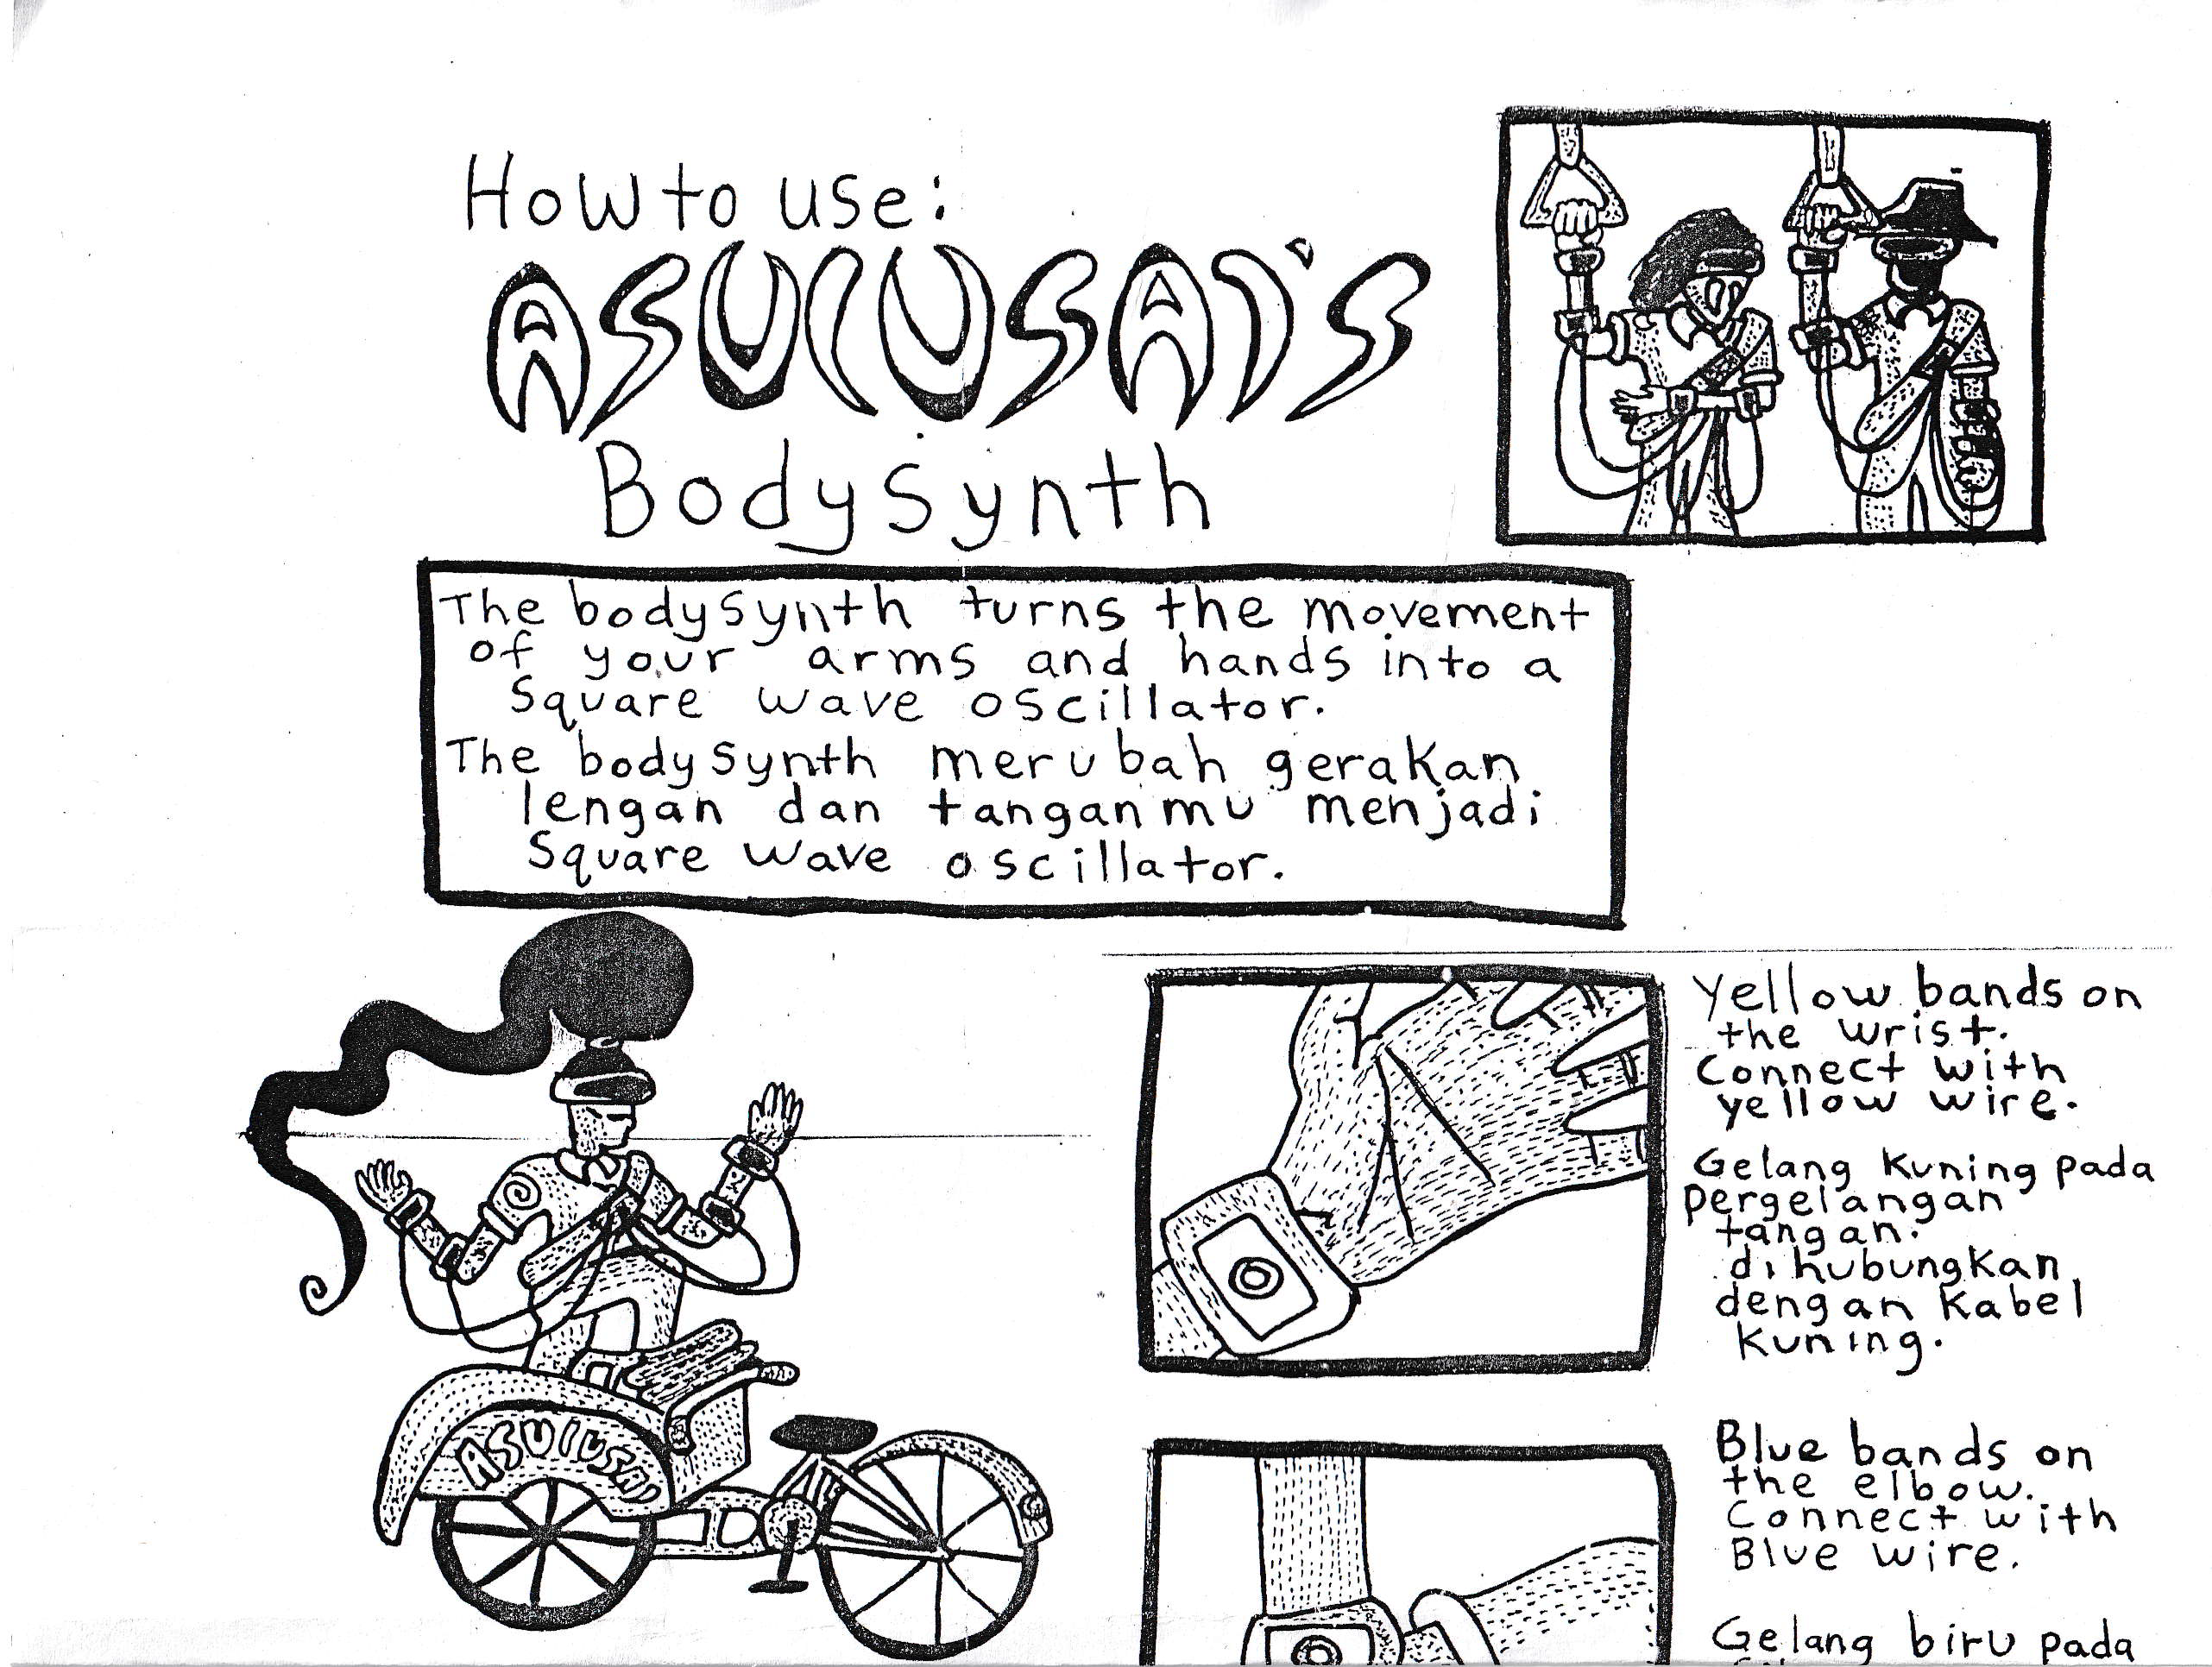 How to use:
ASULUSAI'S
Bodysynth
The bodysynth turns the movement
of your arms and hands into a
square wave oscillator.
The body synth merubah gerakan
lengan dan tanganmu menjadi
square wave oscillator.
Yellow bands on
the wrist.
Connect with
yellow wire.
Gelang kuning pada
pergelangan
tangan.
dihubungkan
dengan kabel
kuning.
ASULUSAI
Blue bands on
the elbow.
Connect with
Blue wire.
Gelang biru pada